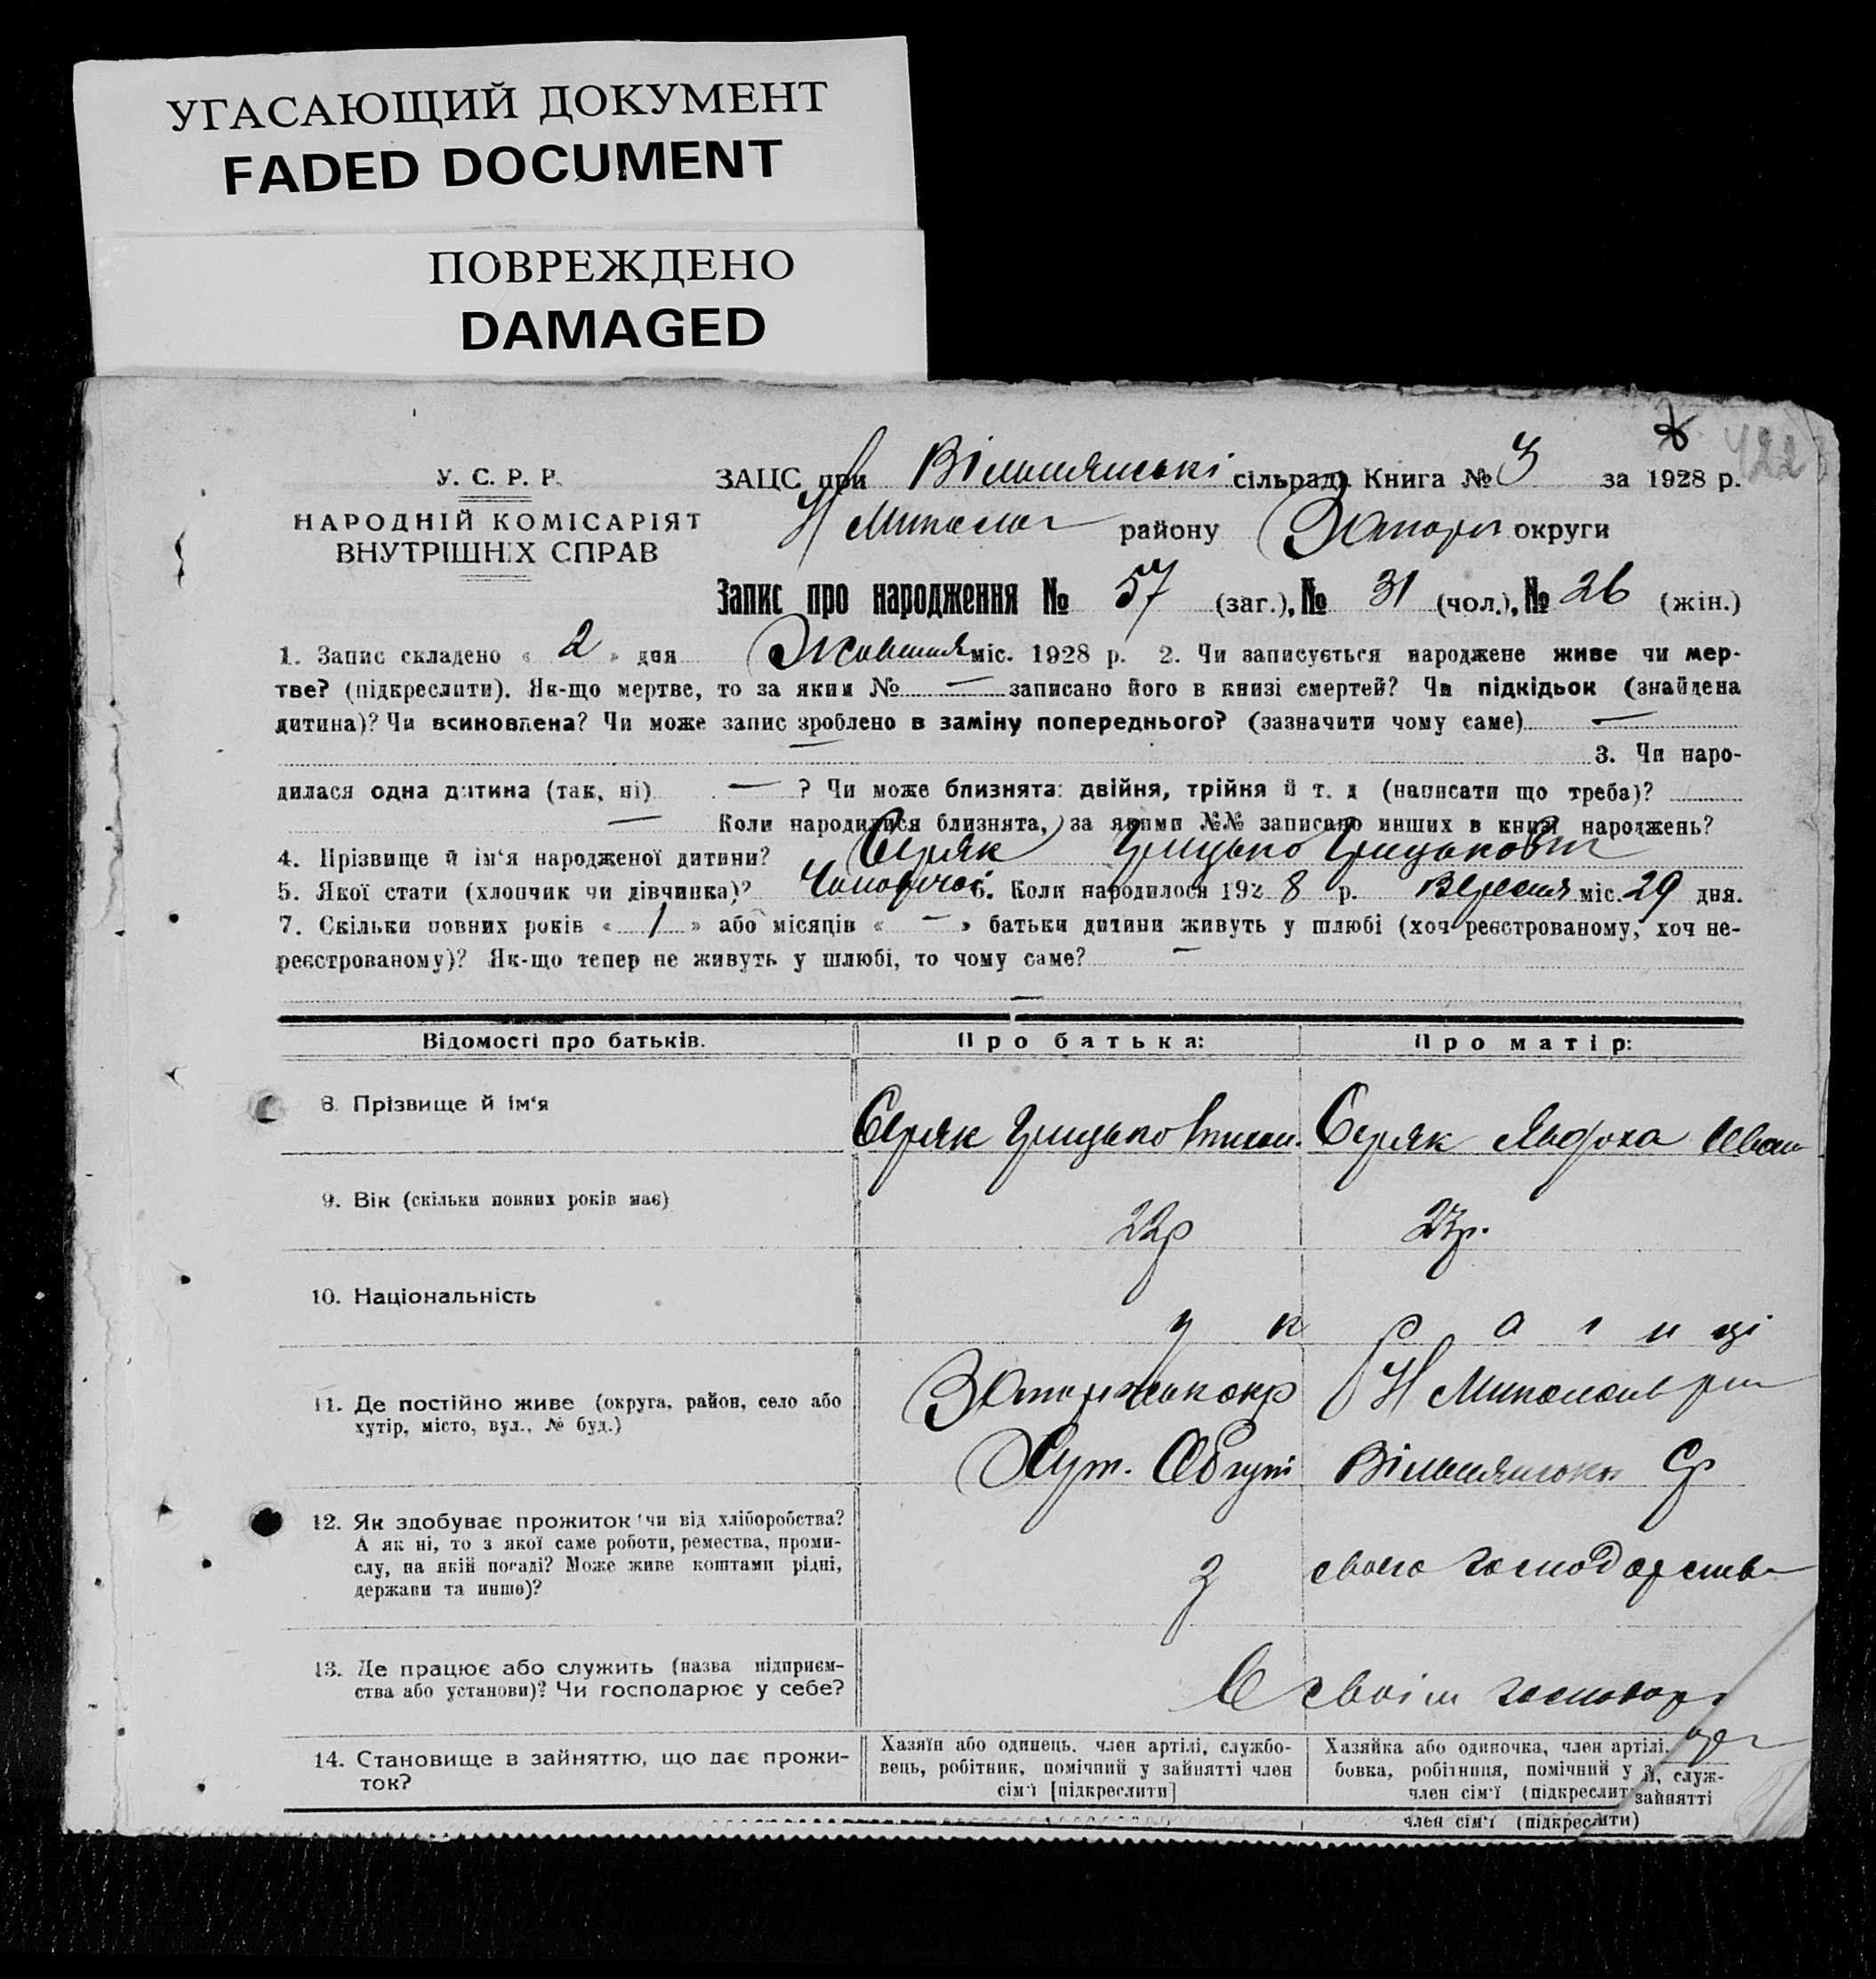 УГАСАЮЩИЙ ДОКУМЕНТ
FADED DOCUMENT
ПОВРЕЖДЕНО
DAMAGED
У. С. Р. Р.
НАРОДНІЙ КОМІСАРІЯТ
ВНУТРІШНІХ СПРАВ
ЗАЦС при Вільшянські сільраді Книга № 3 за 1928 р.
району округи
Запис про народження № 57 (заг.), № 31 (чол.), № 26 (жін.)
1. Запис складено « 2 » дня Жовтня міс. 1928 р. 2. Чи записується народжене живе чи мер-
тве? (підкреслити). Як-що мертве, то за яким № — записано його в книзі смертей? Чи підкідьок (знайдена
дитина)? Чи всиновлена? Чи може запис зроблено в заміну попереднього? (зазначити чому саме) —
— 3. Чи наро-
дилася одна дитина (так, ні) — ? Чи може близнята: двійня, трійня й т. д (написати що треба)?
— Коли народилися близнята, за якими №№ записано инших в книзі народжень?
4. Прізвище й ім'я народженої дитини? Серяк Грицько Грицькович
5. Якої стати (хлопчик чи дівчинка)? 6. Коли народилося 1928 р. Вересня міс. 29 дня.
7. Скільки повних років « 1 » або місяців « — » батьки дитини живуть у шлюбі (хоч реєстрованому, хоч не-
реєстрованому)? Як-що тепер не живуть у шлюбі, то чому саме? —
—
Відомості про батьків. Про батька: Про матір:
8. Прізвище й ім'я Серяк Грицько Серяк Явдоха Іван
9. Вік (скільки повних років має) 22р 23р.
10. Національність у к р а ї н ці
11. Де постійно живе (округа, район, село або
хутір, місто, вул., № буд.)
Хут. Вільшянськи Ср
12. Як здобуває прожиток чи від хліборобства?
А як ні, то з якої саме роботи, ремества, проми-
слу, на якій посаді? Може живе коштами рідні,
держави та инше)?
з свого господарства
13. Де працює або служить (назва підприєм-
ства або установи)? Чи господарює у себе?
В своїм господар
14. Становище в зайняттю, що дає прожи-
ток?
Хазяїн або одинець, член артілі, службо-
вець, робітник, помічний у зайнятті член
сім'ї [підкреслити]
Хазяйка або одиночка, член артілі,
бовка, робітниця, помічний у з й, служ-
член сім'ї (підкреслит зайнятті
член сім'ї (підкреслити)